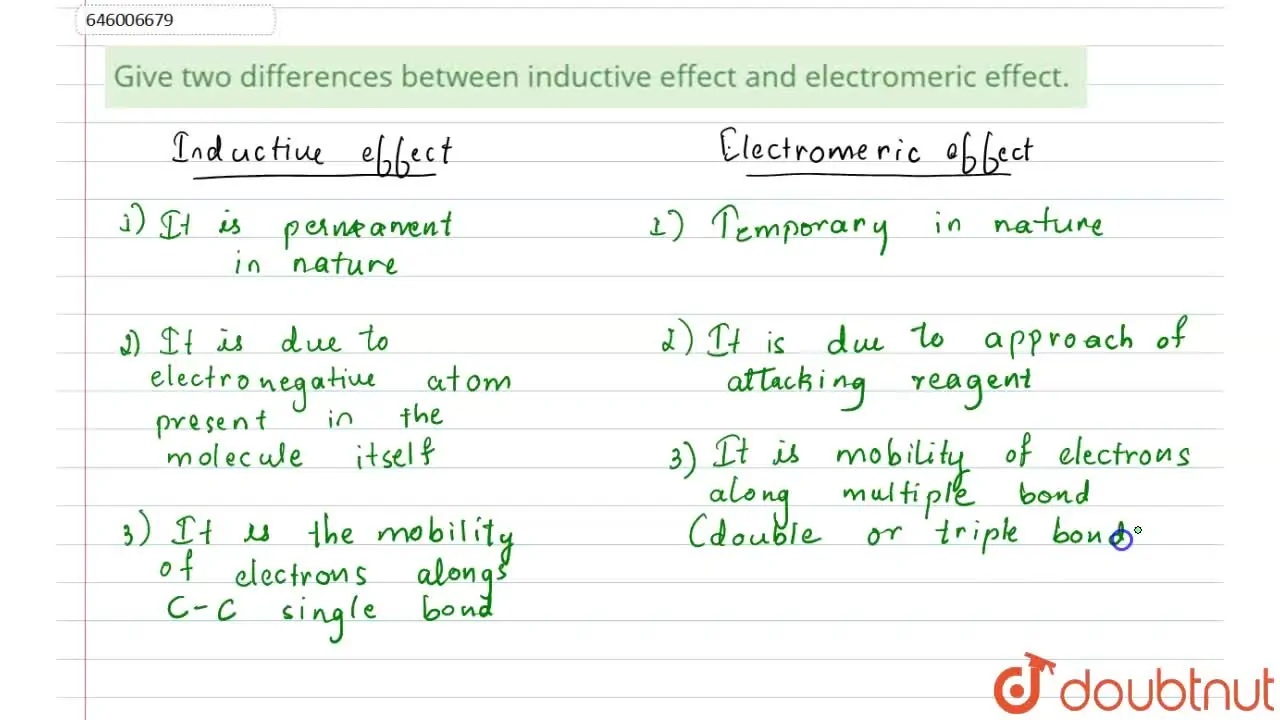 646006679
Give two differences between inductive effect and electromeric effect.
Inductive effect
1) It is permeanent
in nature
2) It is due to
electronegative atom
present in the
molecule itself
3) It is the mobility
of electrons alongs
C-C single bond
Electromeric effect
1) Temporary in nature
2) It is due to approach of
attacking reagent
3) It is mobility of electrons
along multiple bond
(double or triple bond
doubtnut